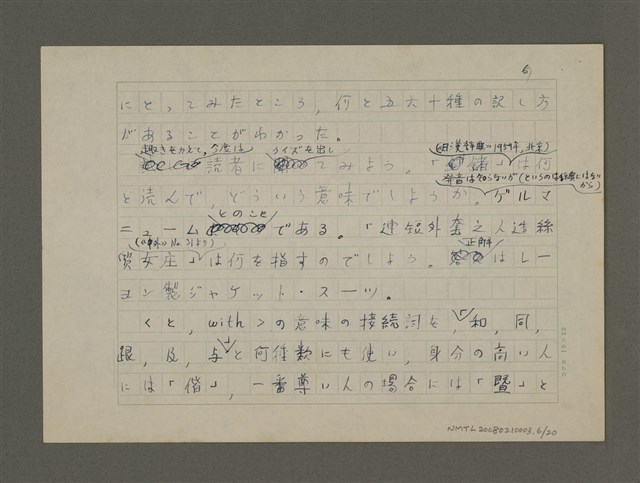 6)
にとってみたところ，何と五六十種の記し方
があることがわかった。
趣きをかえて，今度は
クイズを出し
(「日漢辞典」1959年，北京)
読者に
てみよう。「
鍺」は何
発音は知らないが(というのは辞典にはないから)
と読んで，どういう意味でしようか。ゲルマ
とのこと
ニューム
である。「連短外套之人造絲
(「中外」No.31より)
正解
質女座」は何を指すのでしよう。
はレー
ヨン製ジャケット・スーツ。
くと，with＞の意味の接続詞を，「和，同，
跟，及，与」と何種数にも使い，身分の高い人
には「偕」，一番尊い人の場合には「曁」と
NMTL20080210003.6/20